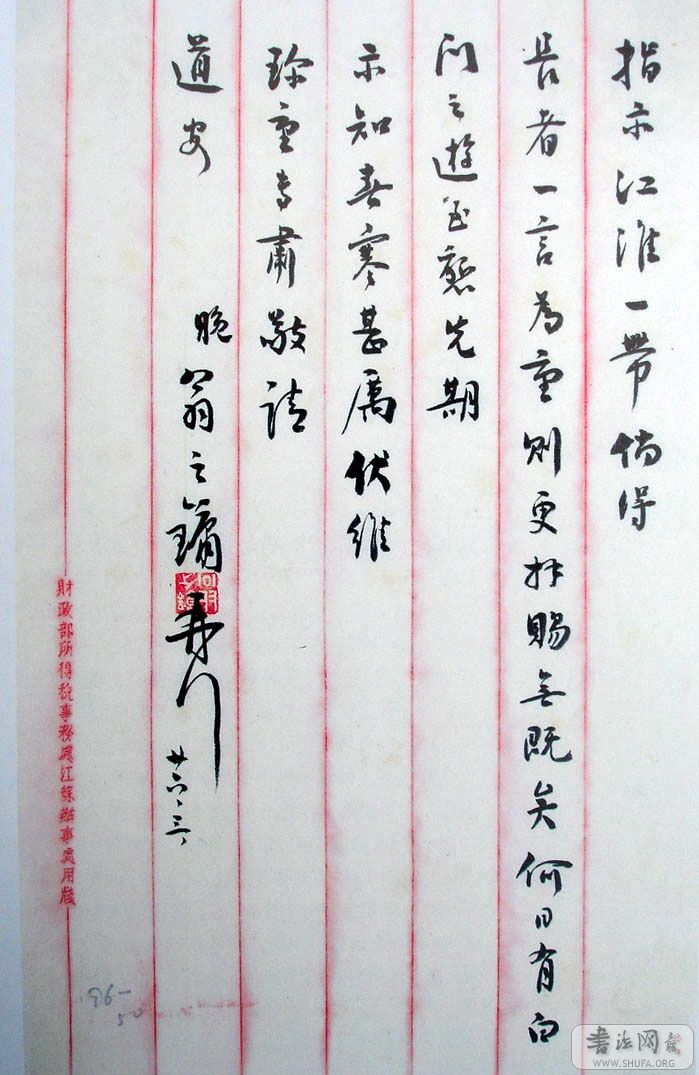 指示江淮一带倘得
長者一言為重則更拜賜無既矣何日有白
門之遊至懇先期
示知春寒甚厲伏維
珍重專肅敬請
道安
晚翁之鏞再行
廿六、三、
財政部所得稅事務處江蘇辦事處用牋
96-
50
書法网
WWW.SHUFA.ORG